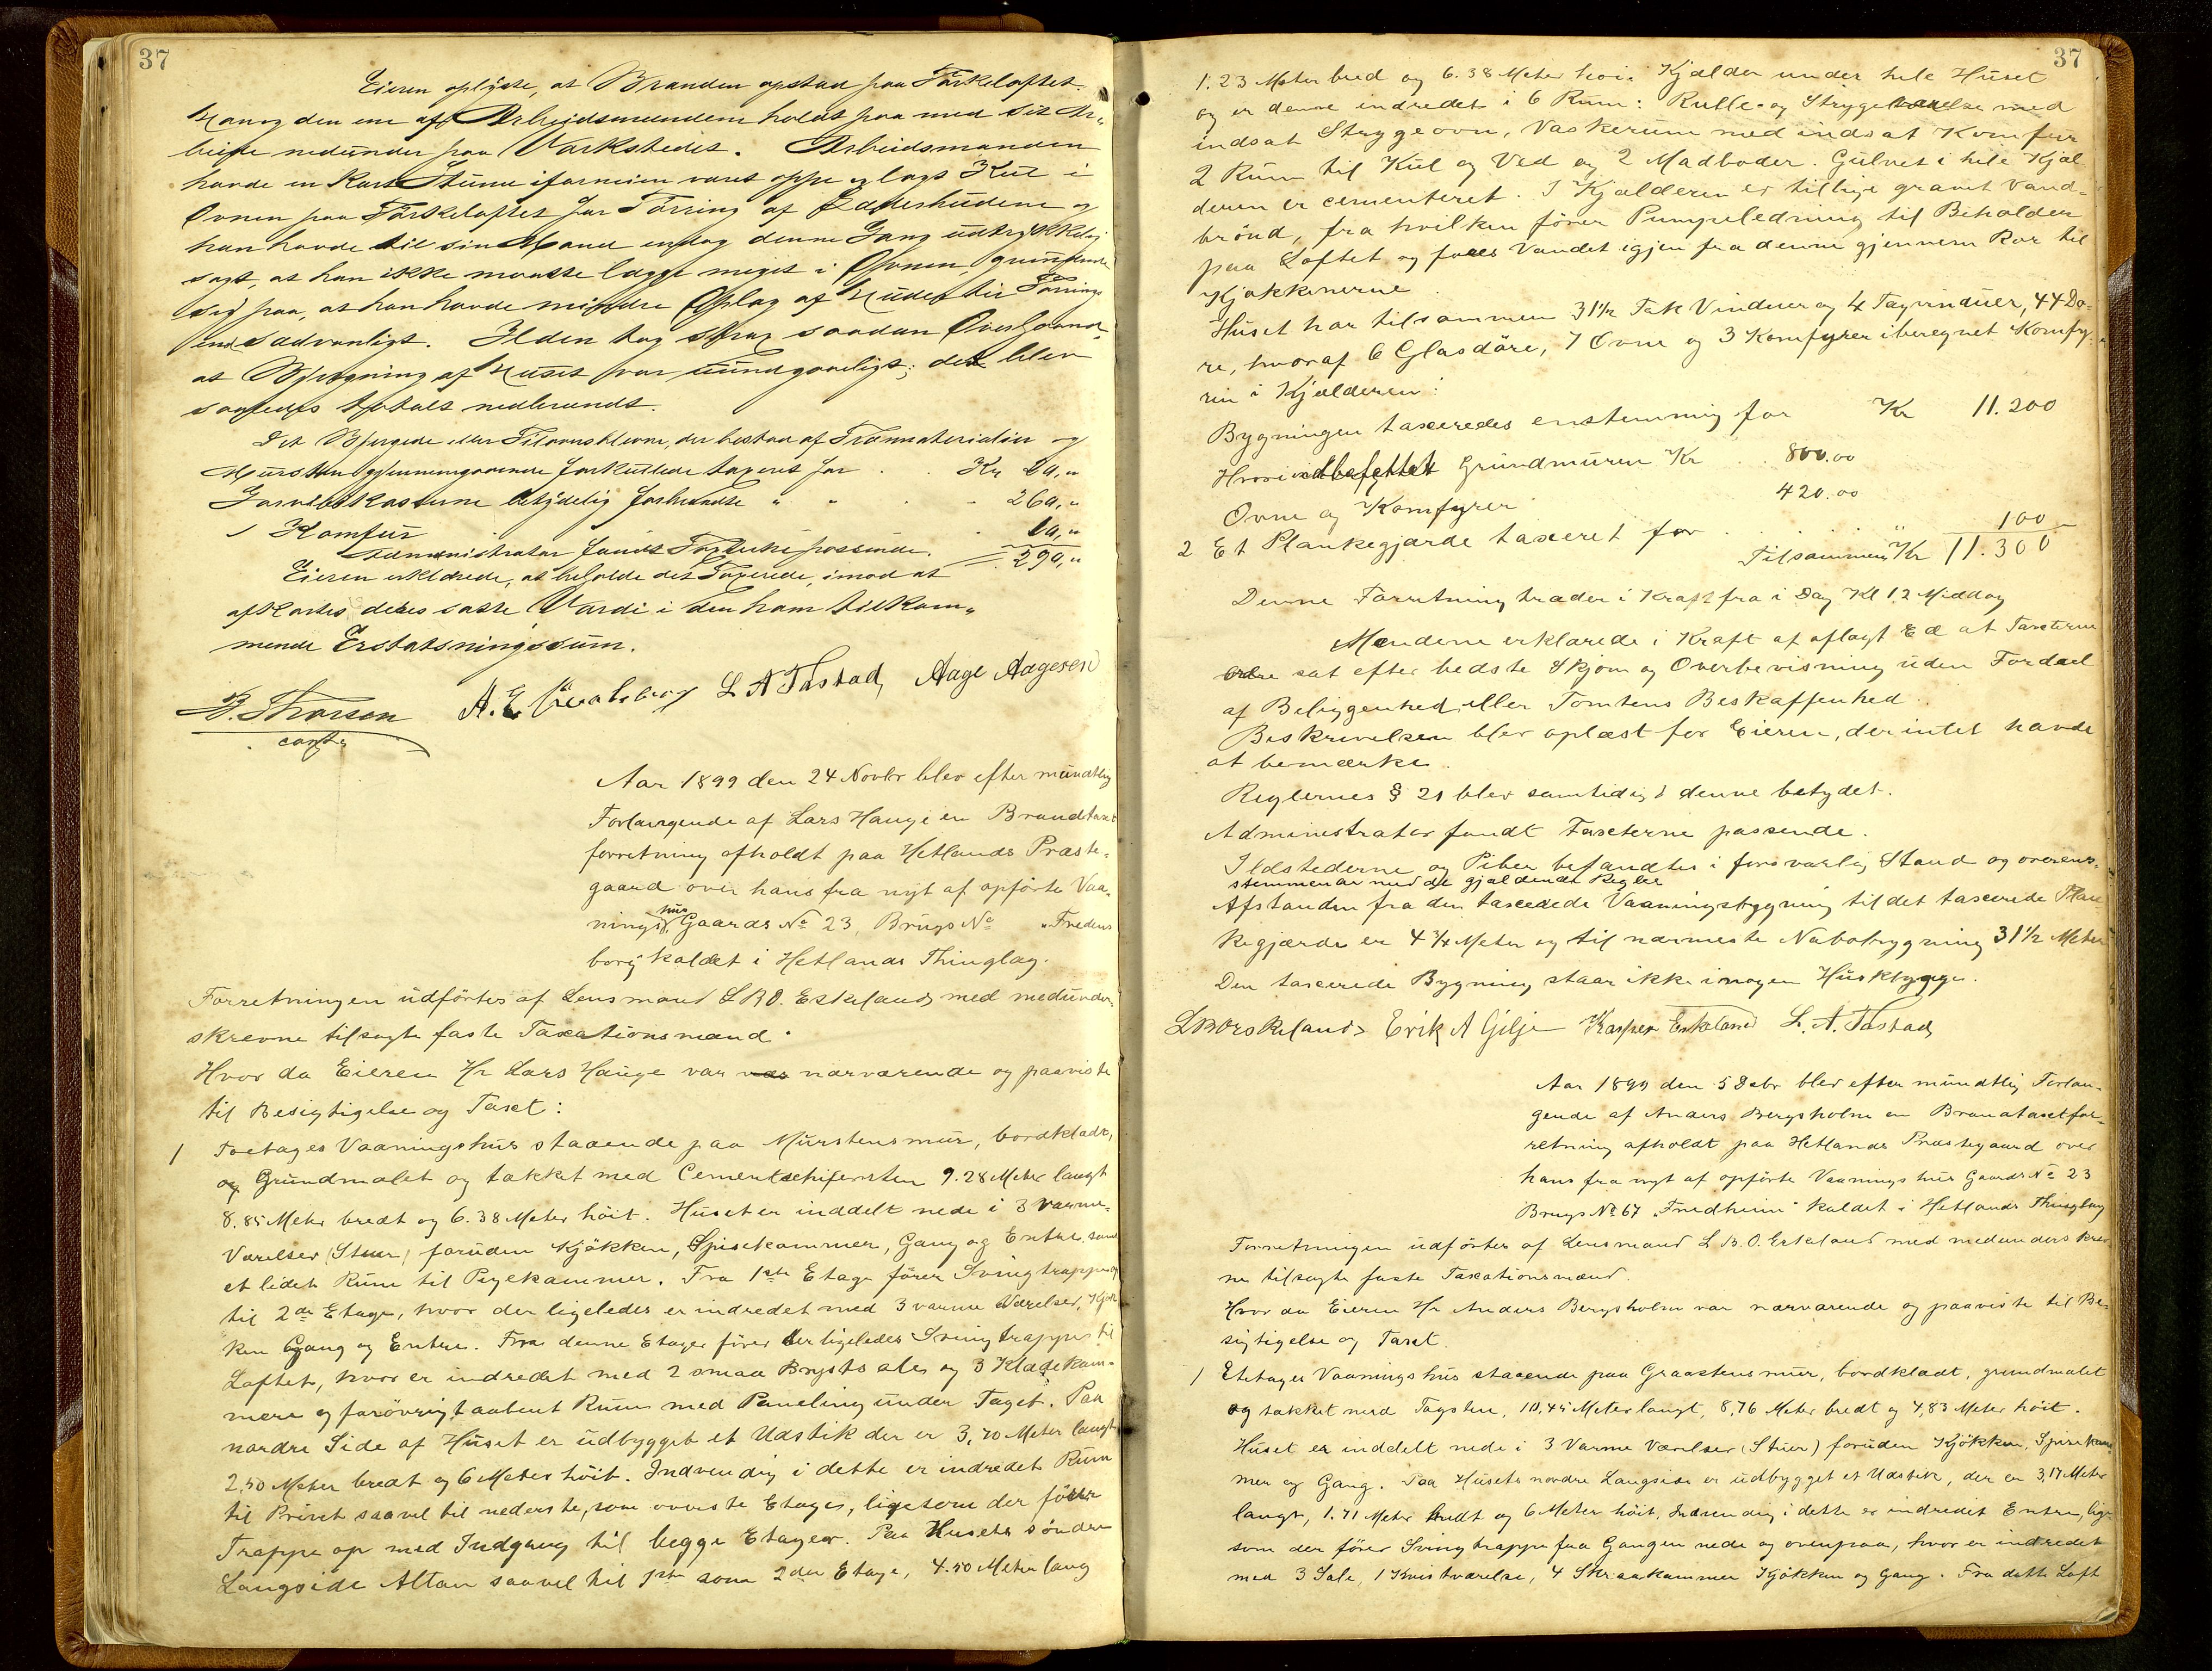 37
Eieren oplyste, at Branden opstod paa Tørkeloftet.
Han og den ene af Arbeidsmændene holdt paa med sit Ar-
beide nedunder paa Værkstedet. Arbeidsmanden
havde en kort Stund iforveien været oppe og lagt Kul i
Ovnen paa Tørkeloftet for Tørring af Læderhuderne og
han havde til sin Mand endog denne Gang udtrykkelig
sagt, at han ikke maatte lægge meget i Ovnen, grundende
sig paa, at han havde mindre Oplag af Huder til Tørring
end sædvanligt. Ilden tog strax saadan Overhaand,
at Bjergning af Huset var uundgaaeligt; det blev
saaledes totalt nedbrændt.
Det Bjergede eller Tilovnsblevne, der bestaar af Træmaterialier og
Mursten gjennemgaaende forkullede taxeret for . . Kr 20,"
Garvekasserne betydelig forbrændte " " . . 260,"
1 Komfur . 10,"
Administrator fandt Taxterne passende. 290,"
Eieren erklærede, at beholde det Taxerede, imod at
afkortes dettes satte Værdi i den ham tilkom-
mende Erstatningssum.
B. Thorsen
const.
A. E. L A Tastad, Aage Aagesen
Aar 1899 den 24 Novbr blev efter mundtlig
Forlangende af Lars Hauge en Brandtaxt
forretning afholdt paa Hetlands Præste-
gaard over hans fra nyt af opførte Vaa-
nings hus Gaards No 23, Brugs No "Fredens
borg" kaldet i Hetlands Thinglag.
Forretningen udførtes af Lensmand L B O. Eskeland med medunder-
skrevne tilsagte faste Taxationsmænd.
Hvor da Eieren Hr Lars Hauge var nærværende og paaviste
til Besigtigelse og Taxt:
1 Toetages Vaaningshus staaende paa Murstensmur, bordklædt,
og Grundmalet og tækket med Cementschifersten 9.28 Meter langt
8.85 Meter bredt og 6.38 Meter høit. Huset er inddelt nede i 3 varme
Værelser (Stuer) foruden Kjøkken, Spisekammer, Gang og Entre, samt
et lidet Rum til Pigekammer. Fra 1ste Etage fører Svingtrappe op
til 2de Etage, hvor der ligeledes er indredet med 3 varme Værelser, Kjøk
ken Gang og Entre. Fra denne Etage fører der ligeledes Svingtrappe til
Loftet, hvor er indredet med 2 smaa Brystsale og 3 Klædekam-
mere og forøvrigt aabent Rum med Paneling under Taget. Paa
nordre Side af Huset er udbygget et Udstik der er 3,70 Meter langt
2,50 Meter bredt og 6 Meter høit. Indvendig i dette er indredet Rum
til Privet saavel til nederste, som øverste Etage, ligesom der fører
Trappe op med Indgang til begge Etager. Paa Husets søndre
Langside Altan saavel til 1ste som 2den Etage, 4.50 Meter lang
37
1.23 Meter bred og 6.38 Meter høi. Kjælder under hele Huset
og er denne indredet i 6 Rum: Rulle- og Strygeværelse med
indsat Strygeovn, Vaskerum med indsat Komfur
2 Rum til Kul og Ved og 2 Madboder. Gulvet i hele Kjæl
deren er cementeret. I Kjælderen er tillige gravet Vand-
brønd, fra hvilken fører Pumpeledning til Beholder
paa Loftet og føres Vandet igjen fra denne gjennem Rør til
Kjøkkenerne.
Huset har tilsammen 31 1/2 Fak Vinduer og 4 Tagvinduer, 44 Dø-
re, hvoraf 6 Glasdøre, 7 Ovne og 3 Komfyrer iberegnet Komfy-
ren i Kjælderen:
Bygningen taxeredes enstemmig for Kr 11.200
Hvori indbefattet Grundmuren Kr 800.00
Ovne og Komfyrer 420.00
2 Et Plankegjærde taxeret for . . . . . " 100 -
Tilsammen Kr 11.300
Denne Forretning træder i Kraft fra i Dag Kl 12 Middag
Mændene erklærede i Kraft af aflagt Ed at Taxterne
vare sat efter bedste Skjøn og Overbevisning uden Fordeel
af Beliggenhed eller Tomtens Beskaffenhed.
Beskrivelsen blev oplæst for Eieren, der intet havde
at bemærke.
Reglernes § 21 blev samtidigt denne betydet.
Administrator fandt Taxterne passende.
Ildstederne og Piber befandtes i forsvarlig Stand og overens-
stemmende med de gjældende Regler
Afstanden fra den taxerede Vaaningsbygning til det taxerede Plan
kegjærde er 4 3/4 Meter og til nærmeste Nabobygning 31 1/2 Meter
Den taxerede Bygning staar ikke i nogen Husklynge.
L B O Eskeland Erik A Gilje Kasper Eskeland L. A. Tastad
Aar 1899 den 5 Debr blev efter mundtlig Forlan-
gende af Anders Bergsholm en Brandtaxtfor-
retning afholdt paa Hetlands Præstegaard over
hans fra nyt af opførte Vaanings hus Gaards No 23
Brugs No 67 "Fredheim" kaldet i Hetlands Thinglag
Forretningen udførtes af Lensmand L. B. O. Eskeland med medunderskrev
ne tilsagte faste Taxationsmænd.
Hvor da Eieren Hr Anders Bergsholm var nærværende og paaviste til Be-
sigtigelse og Taxt.
1 Etetages Vaaningshus staaende paa Graastensmur, bordklædt, grundmalet
og tækket med Tagsten, 10,45 Meter langt, 8,76 Meter bredt og 4,83 Meter høit.
Huset er inddelt nede i 3 Varme Værelser (Stuer) foruden Kjøkken, Spisekam
mer og Gang. Paa Husets nordre Langside er udbygget et Udstik, der er 3,17 Meter
langt, 1.71 Meter bredt og 6 Meter høit, Indvendig i dette er indredet Entre, lige
som der fører Svingtrappe fra Gangen nede og ovenpaa, hvor er indredet
med 3 Sale, 1 Kvistværelse, 4 Skraakammer Kjøkken og Gang. Fra dette Loft